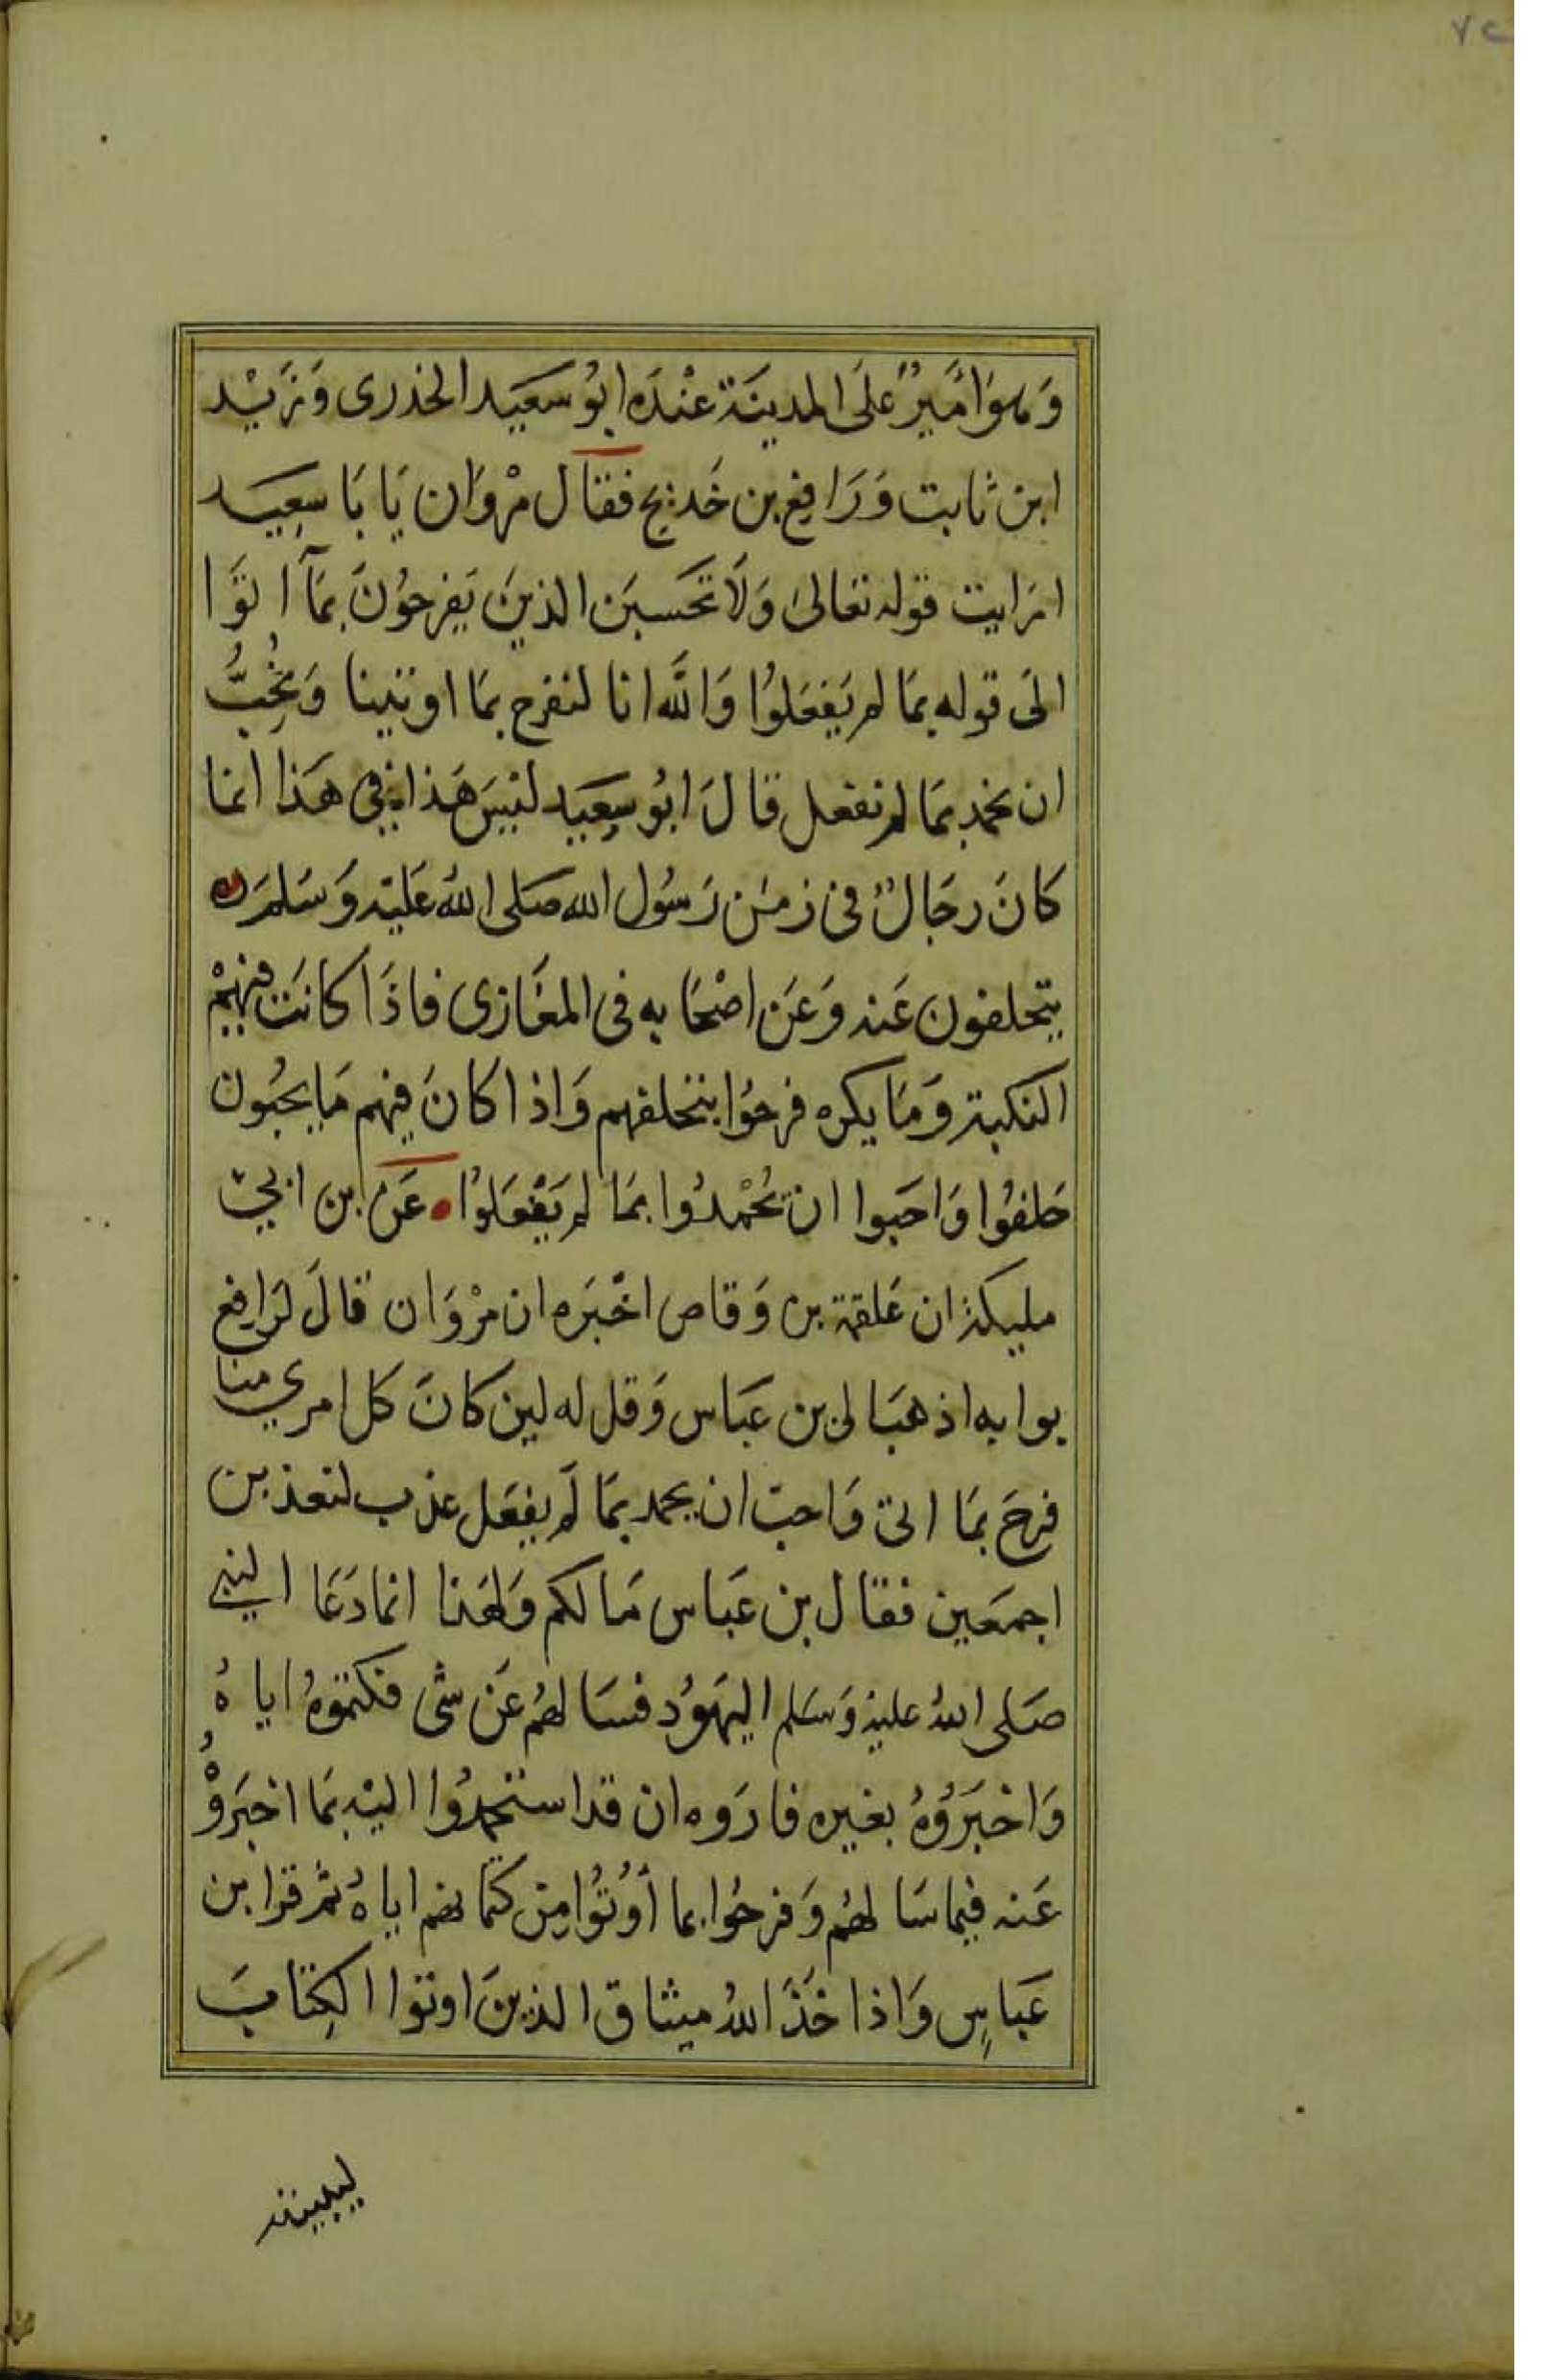 ٧٢
وَهوَ امَيرٌ عَلىَ المدينَة عنْدَه ابوُ سَعيَد الخذرى وَ زَيْد
ابن ثابت وَرَافع بن خَديج فقال مرْوَان يَا بَا سِعيَد
ارَايت قوله تعَالىَ وَلَا تحَسبَن الذينَ يَفرحوُنَ بمَآ اتوَا
الىَ قوله بمَا لم يَفعَلوُا وَاللَّه انا لنفرح بمَا اوتينا وَنحُبُّ
ان نحمد بمَا لم نفعل قالَ ابوُ سِعيَد ليَسَ هَذا فىِ هَذا انما
كانَ رجَالٌ فى زمَن رَسوُل الله صَلى اللهُ عَليْه وَسَلمَ
يتخلفون عَنه وَعَن اصْحَابه فى المغَازى فاذَا كانَت فيهمْ
النكبة وَمَا يكره فرحوُا بتخلفهم وَاذا كانَ فيِهم مَا يحبُون
حَلفوُا وَاحَبوا ان يُحْمدُوا بمَا لم يَفْعَلوُا عَن بن ابى
مليكة ان عَلقمة بن وَقاص اخْبَره ان مرْوَان قالَ لرَافع
بوابه اذهبَ الى بن عَبَاس وَقل له لين كانَ كل امري منا
فرحَ بمَا اتى وَاحبَ ان يحمد بمَا لَم يفعَل عذب لنعذبن
اجمعَين فقال بن عَبَاس مَا لكم وَلهَذا انما دَعَا النبى
صَلى اللهُ عليْه وَسَلم اليهَوُد فسَالهُم عَن شى فكتموُهُ اياهُ
وَاخبَرَوُهُ بغيره فارَوه ان قد استحمدُوا اليْه بمَا اخبَروْهُ
عَنه فيما سَالهُم وَفرحُوا بما أوُتوُا مِن كتمانهم اياهُ ثم قرا بن
عَبَاسِ وَاذ اخَذَ اللهُ ميثاق الذينَ اوتوا الكِتابَ
ليبيننه